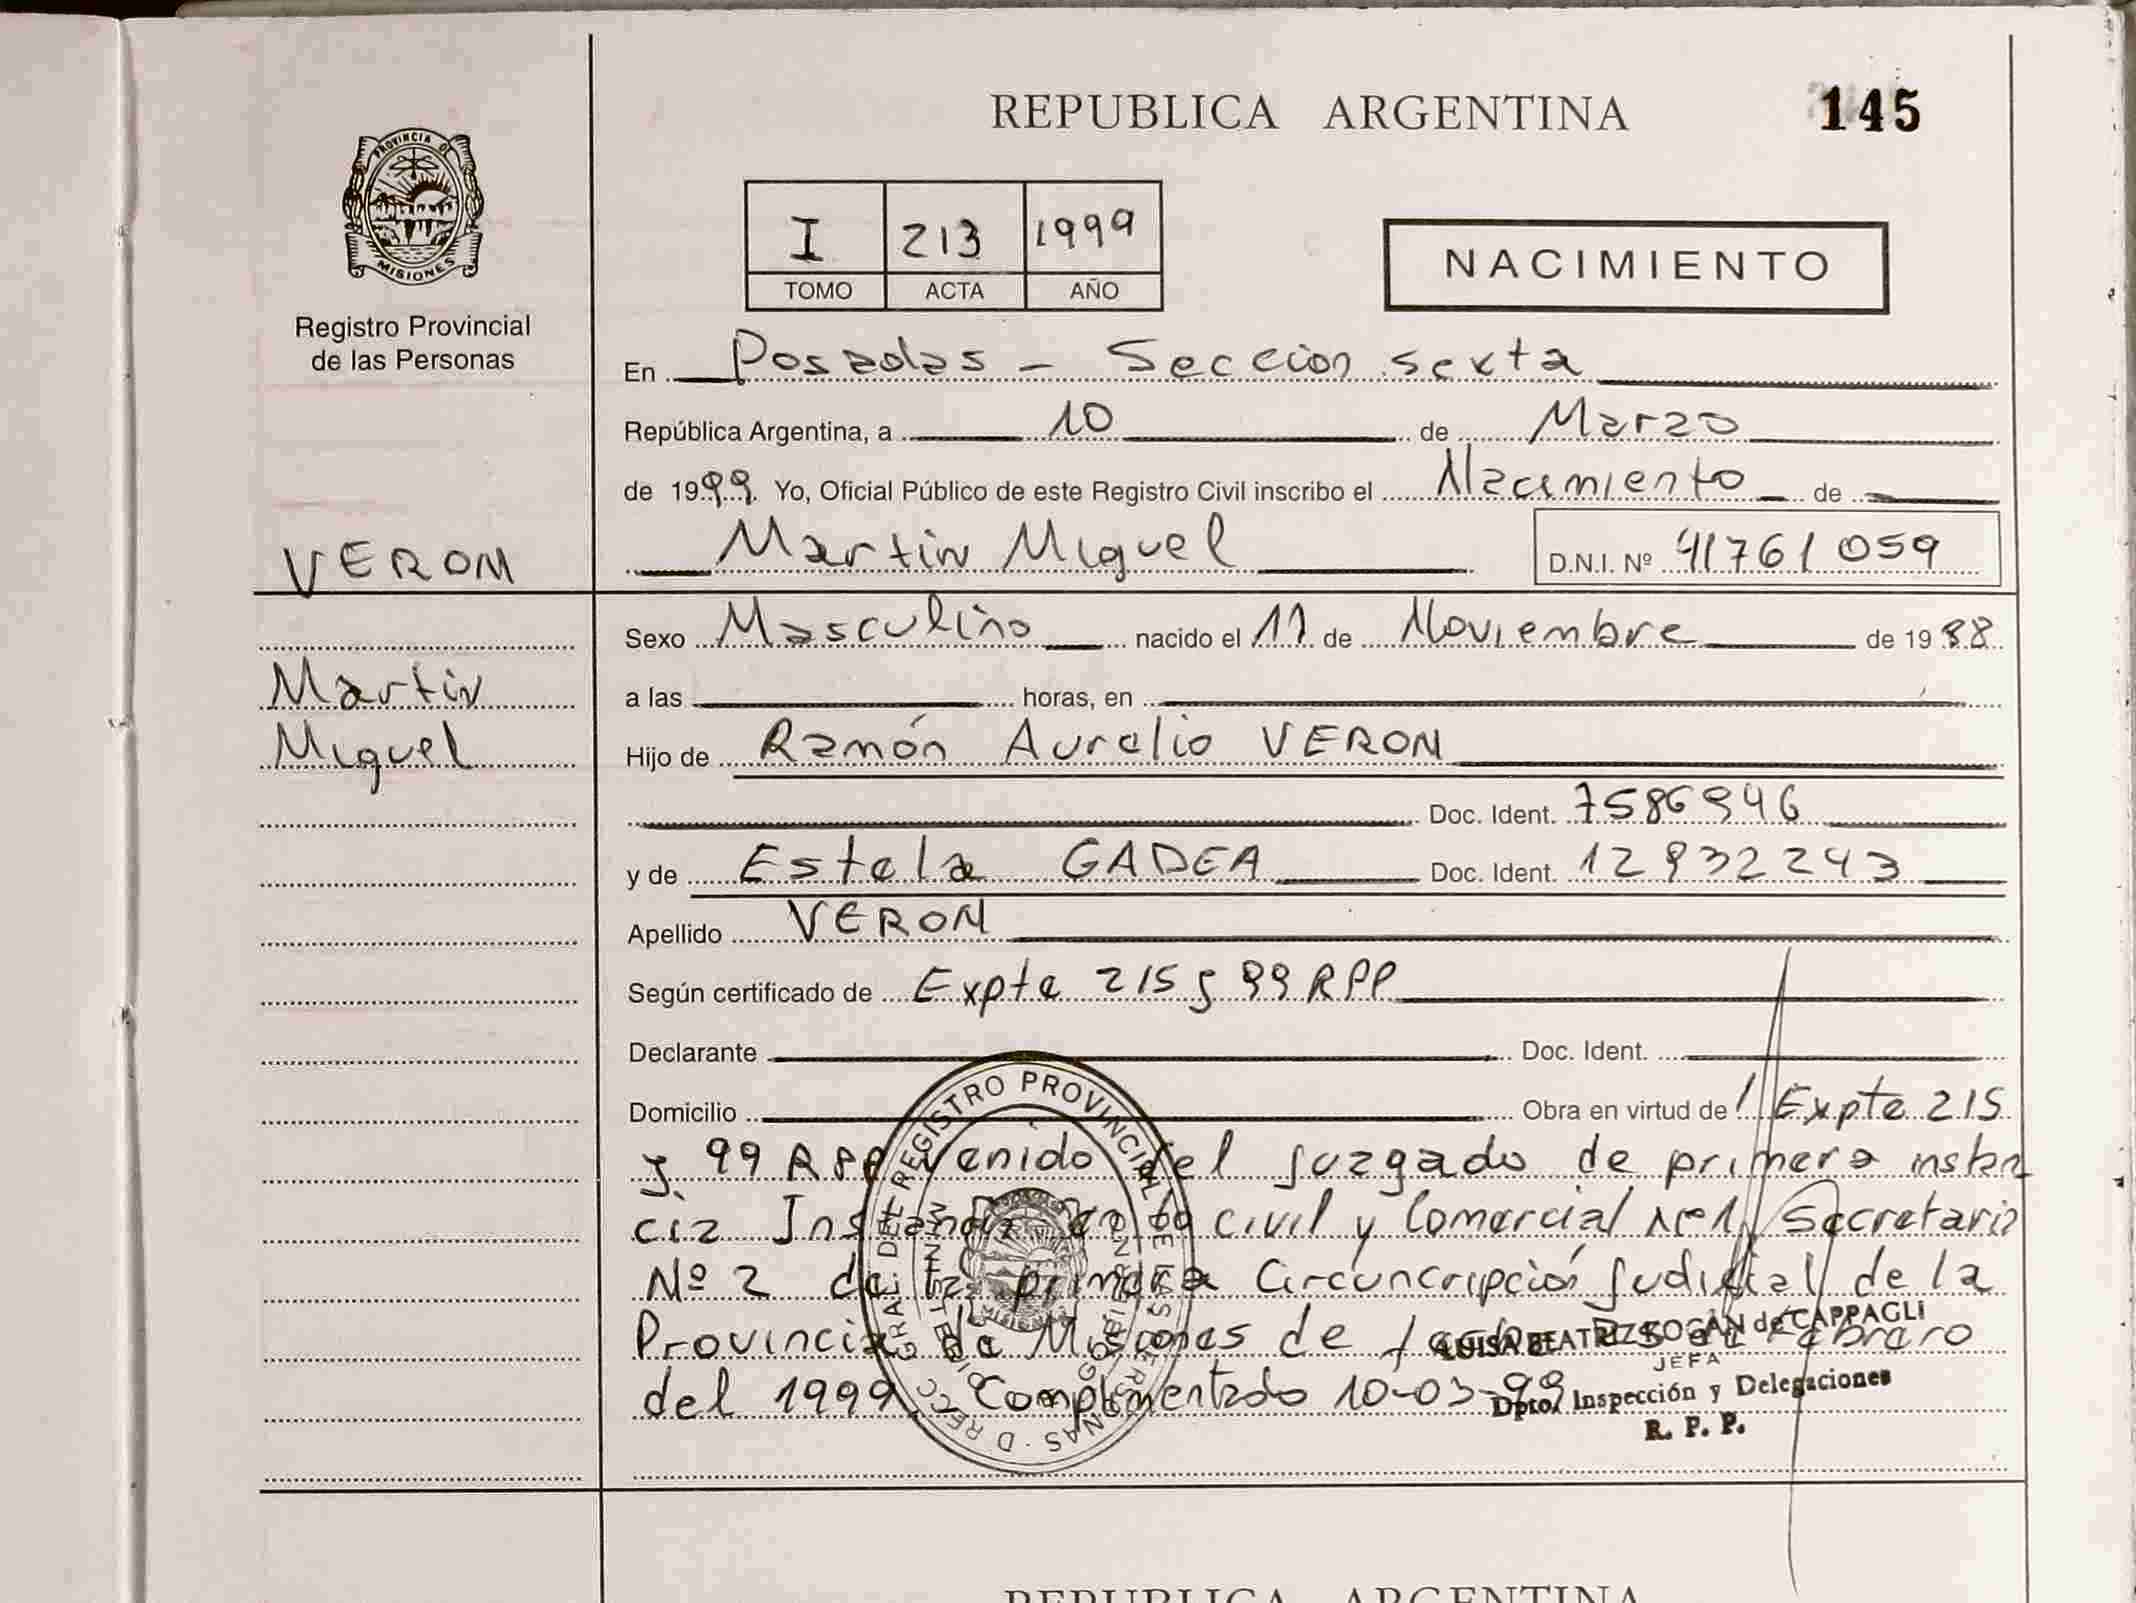 REPUBLICA ARGENTINA
145
PROVINCIA DE
MISIONES
Registro Provincial
de las Personas
I 213 1999
TOMO ACTA AÑO
NACIMIENTO
En Posadas - Seccion sexta
República Argentina, a 10 de Marzo
de 1999 Yo, Oficial Público de este Registro Civil inscribo el Nacimiento de
VERON
Martin Miguel D.N.I. Nº 41761059
Sexo Masculino nacido el 11 de Noviembre de 1988
Martin
a las horas, en
Miguel
Hijo de Ramón Aurelio VERON
Doc. Ident. 7586946
y de Estela GADEA Doc. Ident. 12932243
Apellido VERON
Según certificado de Expte 215 J 99 RPP
Declarante Doc. Ident.
Domicilio Obra en virtud de Expte 215
J 99 RPP venido del Juzgado de primera instan
cia en lo civil y Comercial Nº 1, Secretaria
Nº 2 de la primera Circuncripción Judicial de la
Provincia de Misiones de Febrero
del 1999. Complimentado 10-03-99
LUISA BEATRIZ de CAPPAGLI
JEFA
Dpto. Inspección y Delegaciones
R. P. P.
GRAL. DEL REGISTRO PROVINCIAL DE LAS PERSONAS
REPUBLICA ARGENTINA